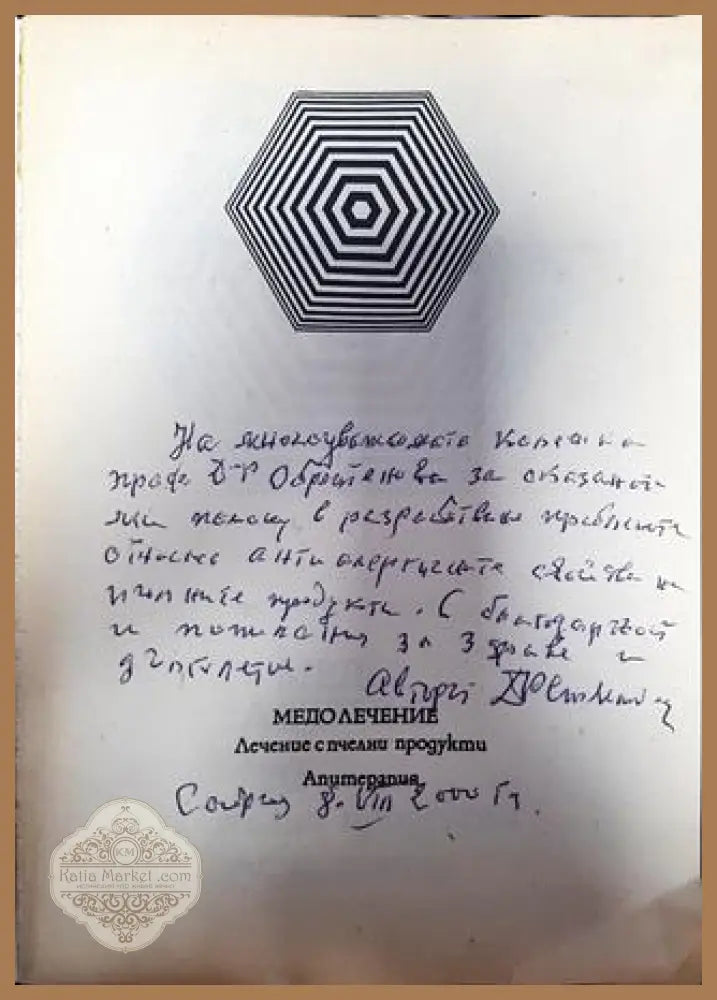 На многоуважаемата колежка
проф. Д-р Обретенова за оказаната
ми помощ в разработване проблемите
относно антиалергичните свойства на
пчелните продукти. С благодарност
и пожелания за здраве и
дълголетие.
Авторът
МЕДОЛЕЧЕНИЕ
Лечение с пчелни продукти
Апитерапия
София 8.VIII 2000 г.
KM
Katia Market .com